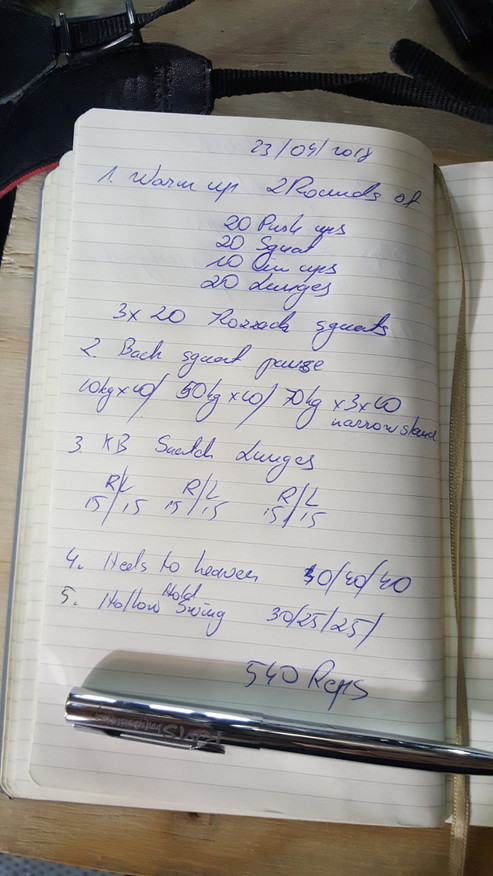 23/04/2018
1. Warm up 2 Rounds of
20 Push ups
20 Squat
10 ups
20 Lunges
3x 20 Kozzack squats
2. Back squat pause
10kg x 10/ 50kg x 10/ 70kg x 3 x 10
narrow stand
3. KB Snatch Lunges
R/L R/L R/L
15/15 15/15 15/15
4. Heels to heaven 40/40/40
5. Hollow Hold Swing 30/25/25/
540 Reps